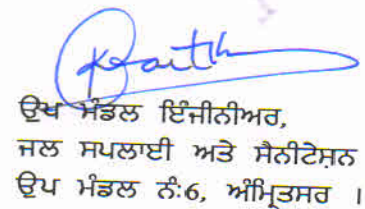 ਉਖ ਮੰਡਲ ਇੰਜੀਨੀਅਰ,
ਜਲ ਸਪਲਾਈ ਅਤੇ ਸੈਨੀਟੇਸ਼ਨ
ਉਪ ਮੰਡਲ ਨੰ:6, ਅੰਮ੍ਰਿਤਸਰ ।